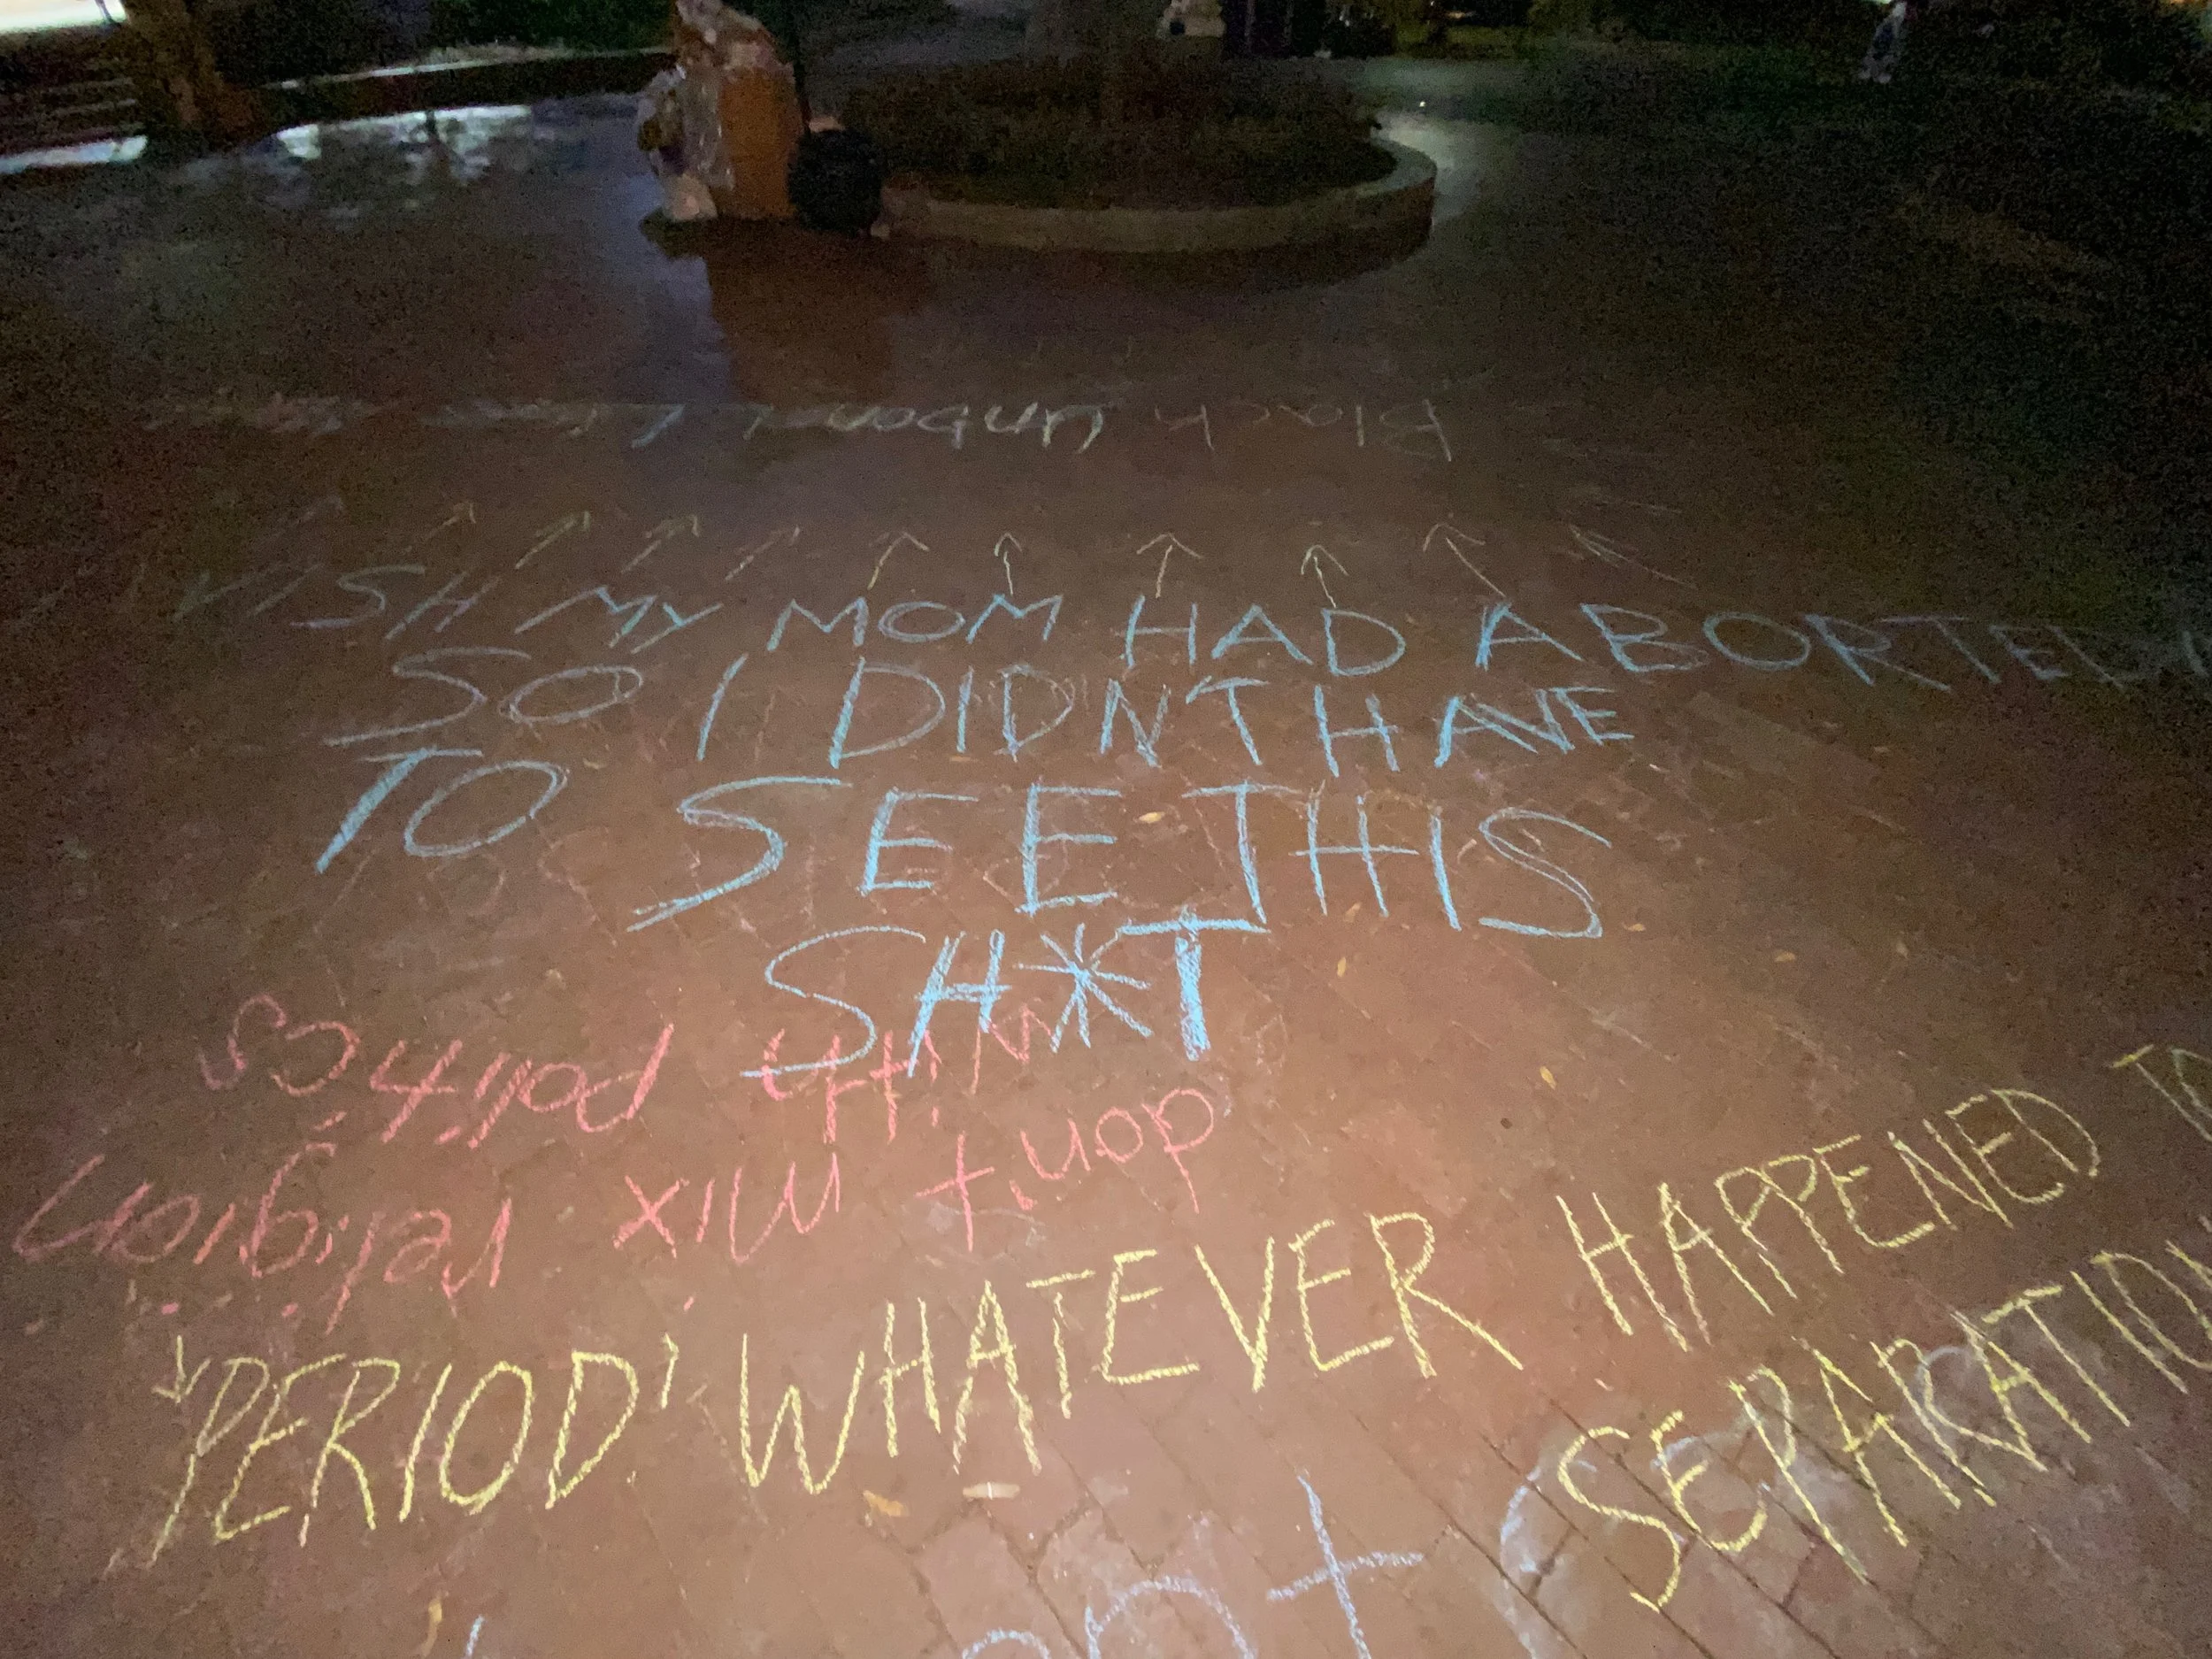 Black unborn
WISH MY MOM HAD ABORTED
SO I DIDN'T HAVE
TO SEE THIS
SH*T
don't mix religion
with politics
'PERIOD' WHATEVER HAPPENED TO
SEPARATION